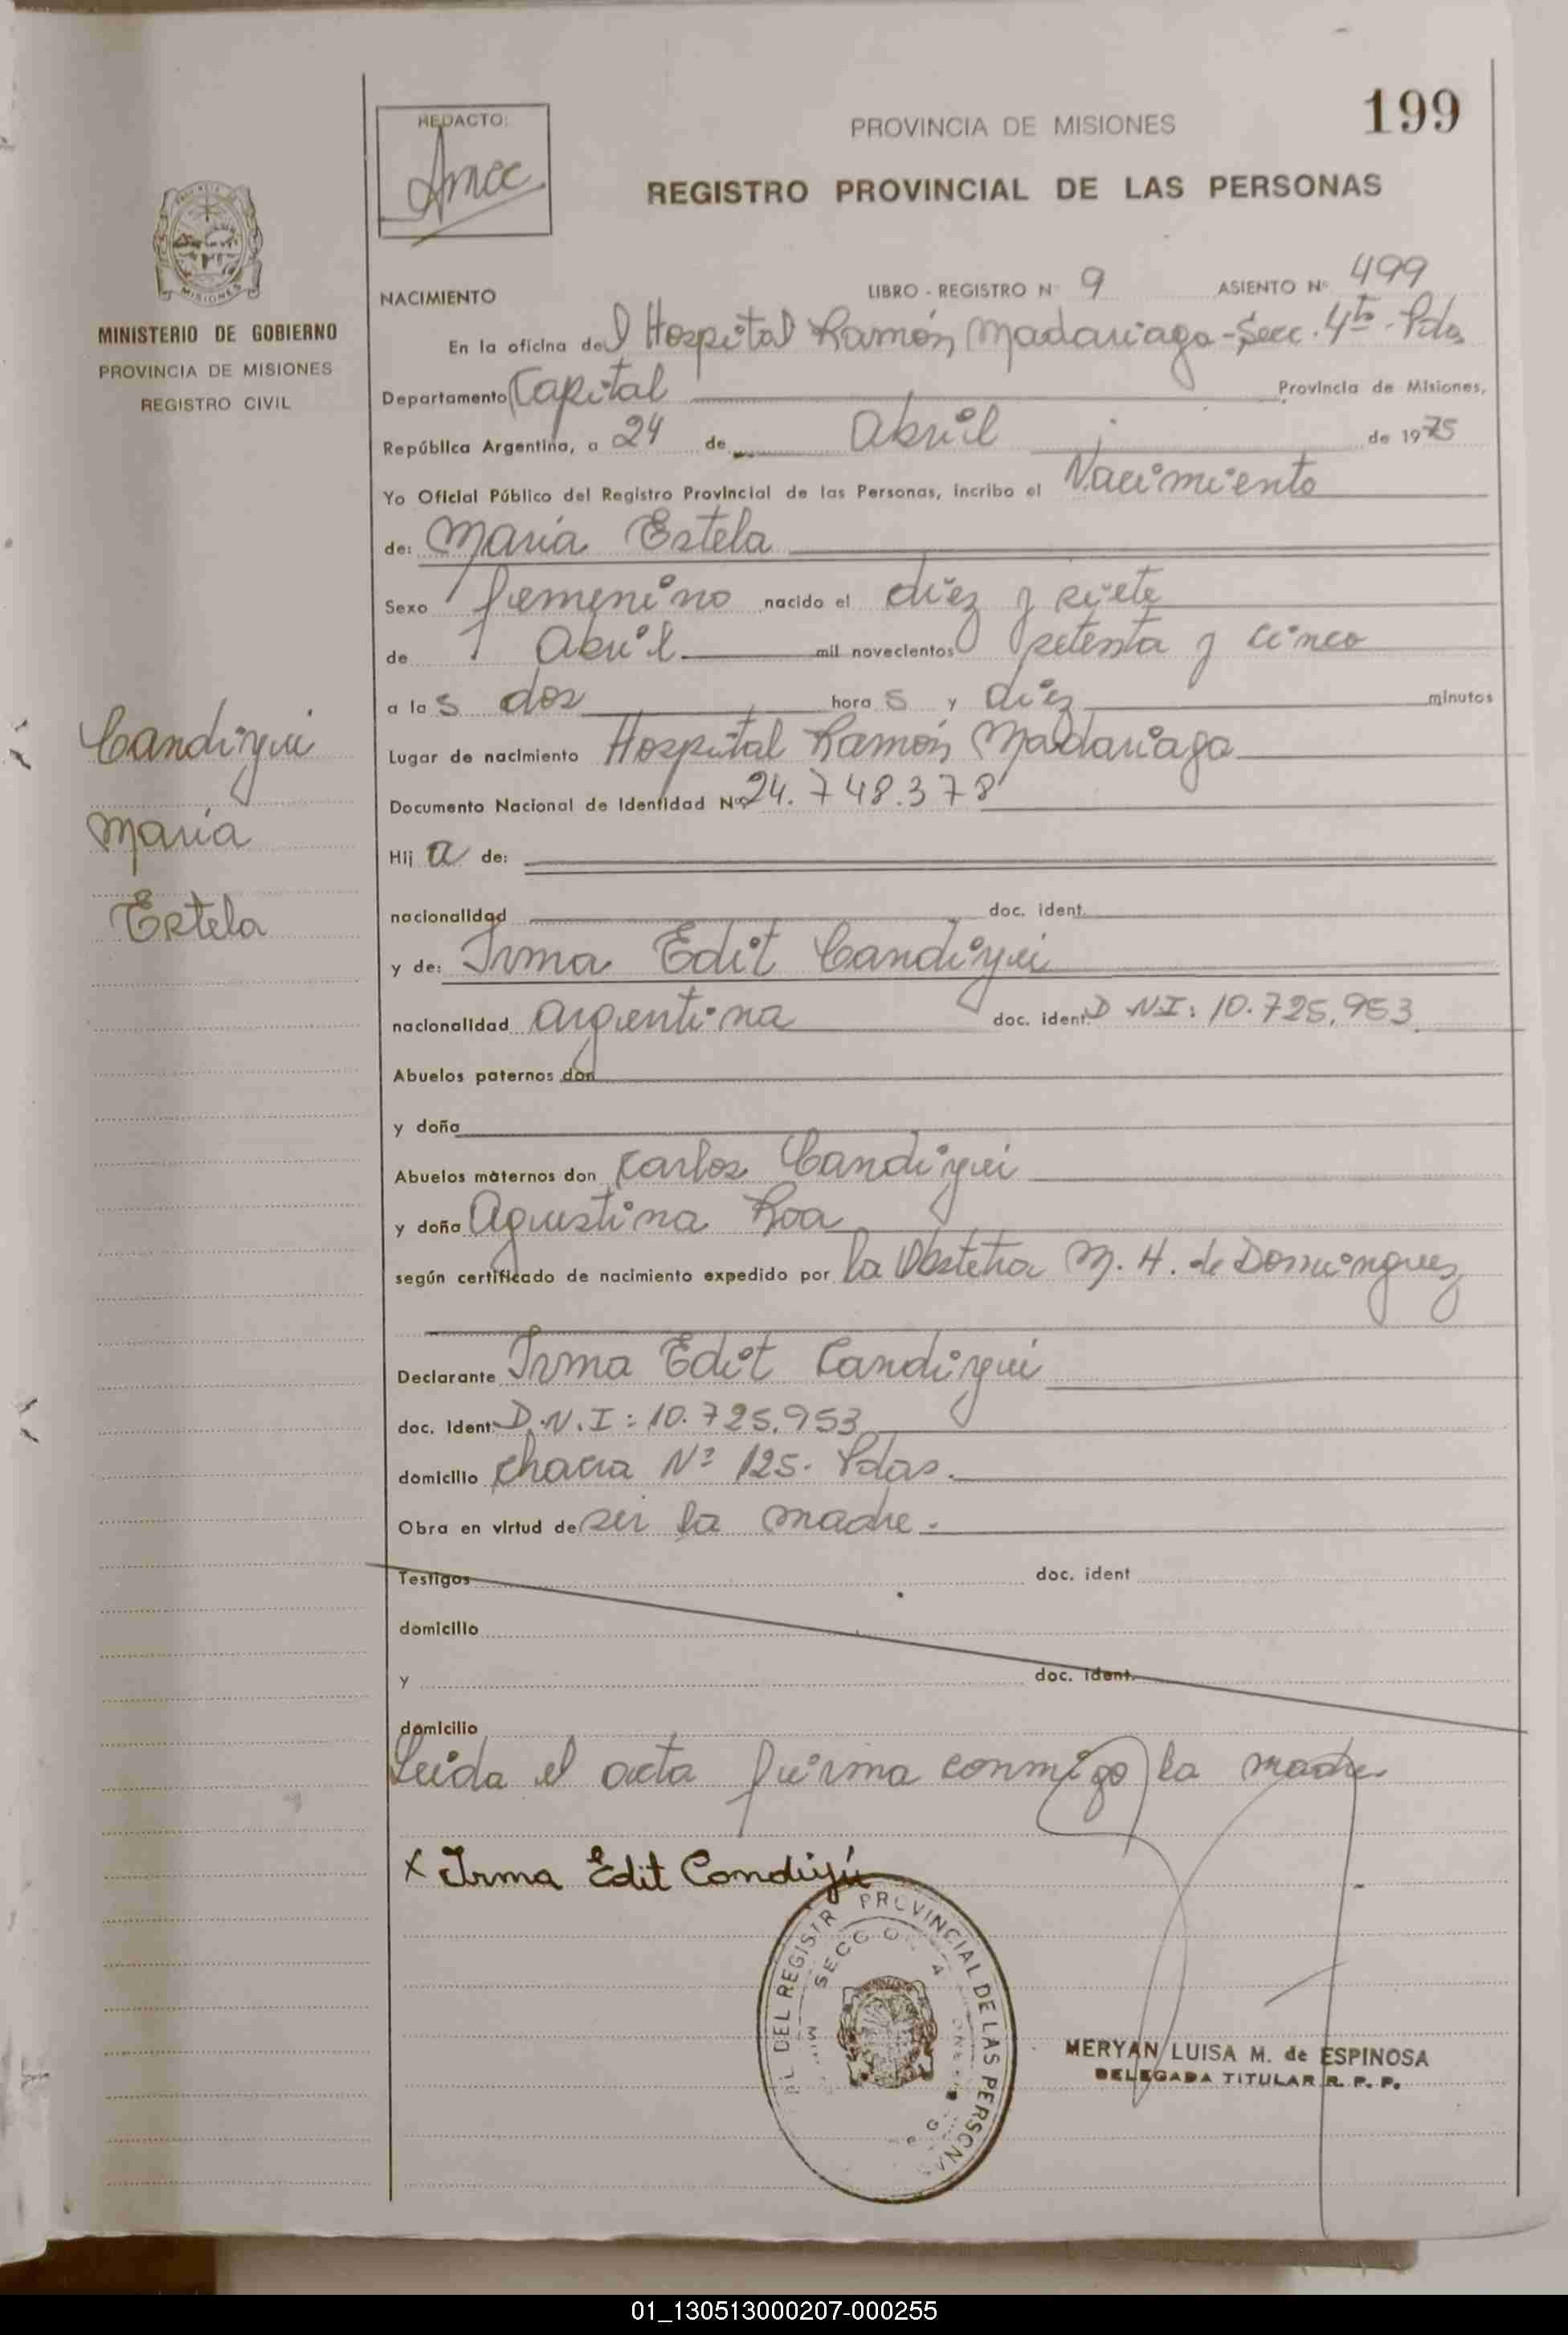 199
REDACTO:
PROVINCIA DE MISIONES
REGISTRO PROVINCIAL DE LAS PERSONAS
MISIONES
MINISTERIO DE GOBIERNO
PROVINCIA DE MISIONES
REGISTRO CIVIL
NACIMIENTO LIBRO - REGISTRO N° 9 ASIENTO N° 499
En la oficina del Hospital Ramón Madariaga - Secc. 4ta - Pdas
Departamento Capital Provincia de Misiones,
República Argentina, a 24 de Abril de 1975
Yo Oficial Público del Registro Provincial de las Personas, incribo el Nacimiento
de: María Estela
Sexo femenino nacido el diez y siete
de Abril mil novecientos setenta y cinco
a las dos horas y diez minutos
Candiyui
María
Estela
Lugar de nacimiento Hospital Ramón Madariaga
Documento Nacional de Identidad Nº 24.748.378
Hija de:
nacionalidad doc. ident.
y de: Irma Edit Candiyui
nacionalidad argentina doc. ident. D.N.I: 10.725.953
Abuelos paternos don
y doña
Abuelos maternos don Carlos Candiyui
y doña Agustina Roa
según certificado de nacimiento expedido por la Obstetra M. H. de Dominguez
Declarante Irma Edit Candiyui
doc. Ident. D.N.I: 10.725.953
domicilio chacra Nº 125. Pdas.
Obra en virtud de ser la madre.
Testigos doc. ident
domicilio
y doc. ident.
domicilio
Leida el acta firma conmigo la madre
x Irma Edit Condiyú
DEL REGISTR PROVINCIAL DE LAS PERSONAS
MERYAN LUISA M. de ESPINOSA
DELEGADA TITULAR R. P. P.
01_130513000207-000255